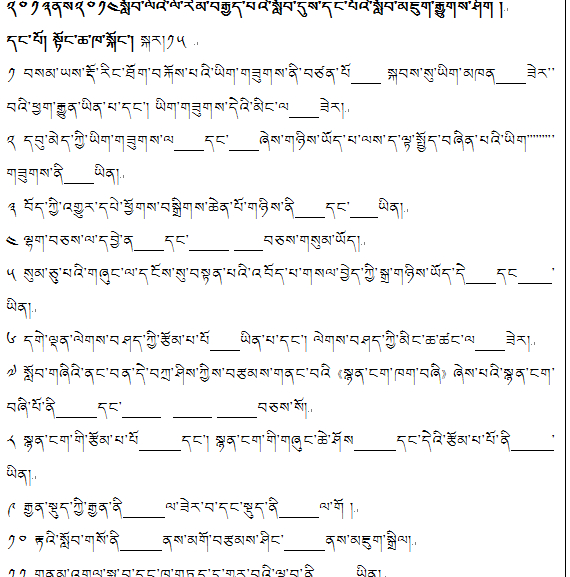 ༢༠༡༣ནས༢༠༡༤སློབ་ལོའི་ལོ་རིམ་བརྒྱད་པའི་སློབ་དུས་དང་པོའི་སློབ་མཇུག་རྒྱུགས་ཤོག །
དང་པོ། སྟོང་ཆ་ཁ་སྐོང་། སྐར།༡༥
༡ བསམ་ཡས་རྡོ་རིང་ཐོག་བརྐོས་པའི་ཡིག་གཟུགས་ནི་བཙན་པོ____ སྐབས་སུ་ཡིག་མཁན____ཟེར་
བའི་ཕྱག་རྒྱུན་ཡིན་པ་དང་། ཡིག་གཟུགས་དེའི་མིང་ལ____ཟེར།
༢ དབུ་མེད་ཀྱི་ཡིག་གཟུགས་ལ____དང་____ཞེས་གཉིས་ཡོད་པ་ལས་ད་ལྟ་སྤྱོད་བཞིན་པའི་ཡིག་
གཟུགས་ནི____ཡིན།
༣ བོད་ཀྱི་འགྱུར་དཔེ་ཕྱོགས་བསྒྲིགས་ཆེན་པོ་གཉིས་ནི____དང་____ཡིན།
༤ ལྷག་བཅས་ལ་དབྱེ་ན____དང་_____ ____བཅས་གསུམ་ཡོད།
༥ སུམ་ཅུ་པའི་གཞུང་ལ་དངོས་སུ་བསྟན་པའི་འབོད་པ་གསལ་བྱེད་ཀྱི་སྒྲ་གཉིས་ཡོད་དེ____དང____་
ཡིན།
༦ དགེ་ལྡན་ལེགས་བཤད་ཀྱི་རྩོམ་པ་པོ____ཡིན་པ་དང་། ལེགས་བཤད་ཀྱི་མིང་ཆ་ཚང་ལ____ཟེར།
༧ སློབ་གཞིའི་ནང་བན་དེ་བཀྲ་ཤིས་ཀྱིས་བརྩམས་གནང་བའི《སྙན་ངག་ཁག་བཞི》ཞེས་པའི་སྙན་ངག་
བཞི་པོ་ནི_____དང་_____ _____ _____བཅས་སོ།
༨ སྙན་ངག་གི་རྩོམ་པ་པོ_____དང་། སྙན་ངག་གི་གཞུང་ཆེ་ཤོས_____དང་དེའི་རྩོམ་པ་པོ་ནི_____་
ཡིན།
༩ རྒྱན་སྡུད་ཀྱི་རྒྱན་ནི_____ལ་ཟེར་བ་དང་སྡུད་ནི_____ལ་གོ །
༡༠ རྟའི་སློབ་གསོ་ནི_____ནས་མགོ་བརྩམས་ཤིང་_____ནས་མཇུག་སྒྲིལ།